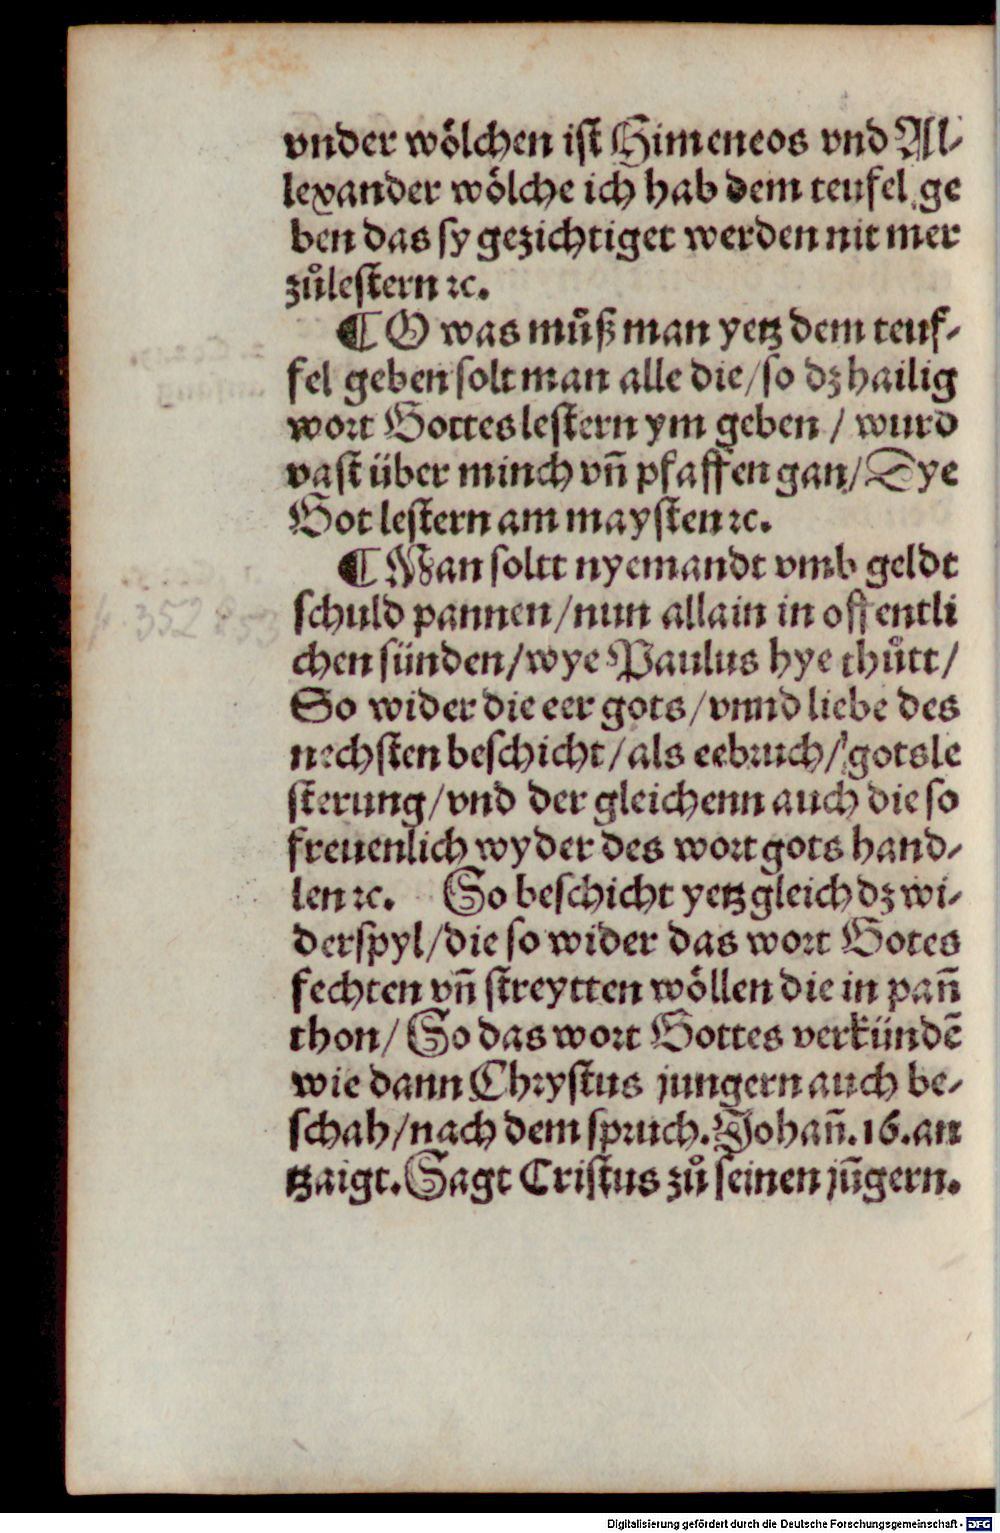 vnder wölchen iſt Himeneos vnd Al⸗
lexander wölche ich hab dem teufel ge
ben das ſy gezichtiget werden nit mer
zůleſtern ꝛc.
¶ O was můß man yetz dem teuf⸗
fel geben ſolt man alle die/ſo dz hailig
wort Gottes leſtern ym geben / wurd
vaſt über minch vñ pfaffen gan/Dye
Got leſtern am mayſten ꝛc.
¶ Man ſoltt nyemandt vmb geldt
ſchuld pannen/nun allain in offentli
chen ſünden/wye Paulus hye thůtt/
So wider die eer gots/vnnd liebe des
nechſten beſchicht/als eebruch/gotsle
ſterung/vnd der gleichenn auch die ſo
freuenlich wyder des wort gots hand⸗
len ꝛc. So beſchicht yetz gleich dz wi⸗
derſpyl/die ſo wider das wort Gotes
fechten vñ ſtreytten wöllen die in pañ
thon/So das wort Gottes verkündē
wie dann Chryſtus jungern auch be⸗
ſchah/nach dem ſpruch.Johañ.16.an
tzaigt.Sagt Criſtus zů ſeinen jūgern.
352 853
Digitalisierung gefördert durch die Deutsche Forschungsgemeinschaft - DFG